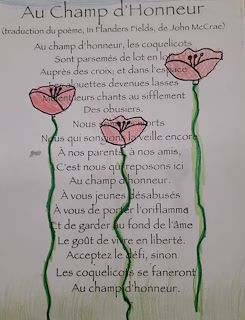 Au Champ d'Honneur
(traduction du poème, In Flanders Fields, de John McCrae)
Au champ d'honneur, les coquelicots
Sont parsemés de lot en lot
Auprès des croix; et dans l'espace
Les alouettes devenues lasses
Mêlent leurs chants au sifflement
Des obusiers.
Nous morts
Nous qui songions la veille encore
À nos parents, à nos amis,
C'est nous qui reposons ici
Au champ d'honneur.
À vous jeunes désabusés
À vous de porter l'oriflamme
Et de garder au fond de l'âme
Le goût de vivre en liberté.
Acceptez le défi, sinon
Les coquelicots se faneront
Au champ d'honneur.